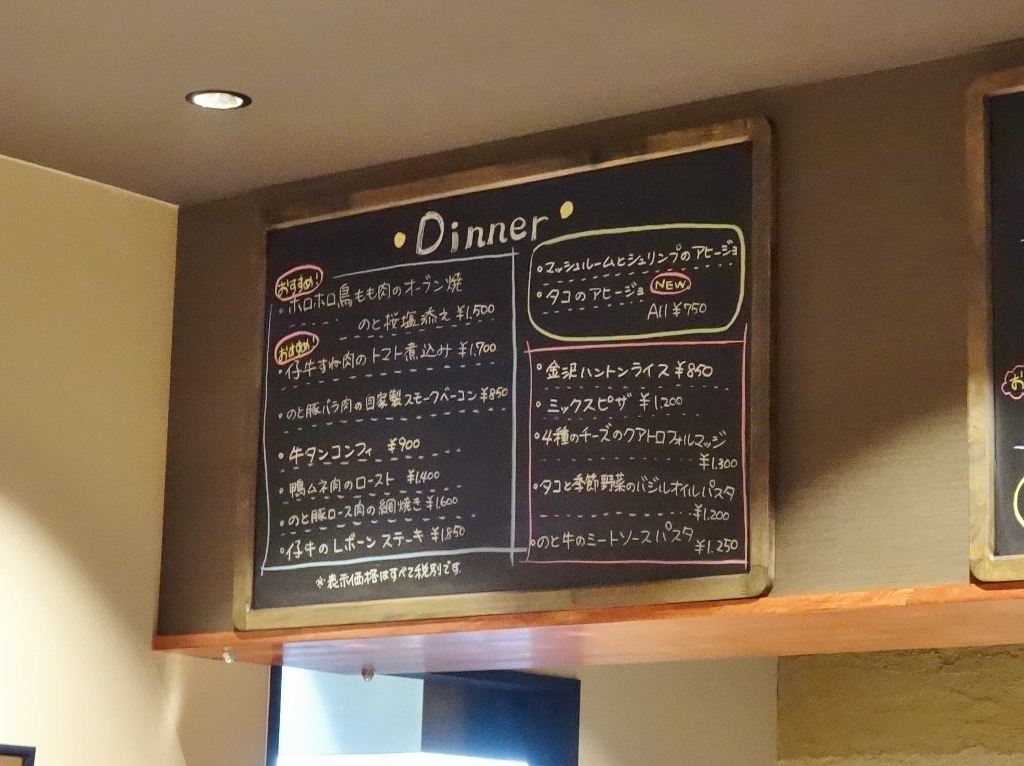 • Dinner •
おすすめ!
・ホロホロ鳥もも肉のオーブン焼
のと桜塩添え ¥1,500
おすすめ!
・仔牛すね肉のトマト煮込み ¥1,700
・のと豚バラ肉の自家製スモークベーコン ¥850
・牛タンコンフィ ¥900
・鴨ムネ肉のロースト ¥1,400
・のと豚ロース肉の網焼き ¥1,600
・仔牛のLボーンステーキ ¥1,850
※表示価格はすべて税別です
・マッシュルームとシュリンプのアヒージョ
・タコのアヒージョ NEW
All ¥750
・金沢ハントンライス ¥850
・ミックスピザ ¥1,200
・4種のチーズのクアトロフォルマッジ
¥1,300
・タコと季節野菜のバジルオイルパスタ
¥1,200
・のと牛のミートソースパスタ
¥1,250
お